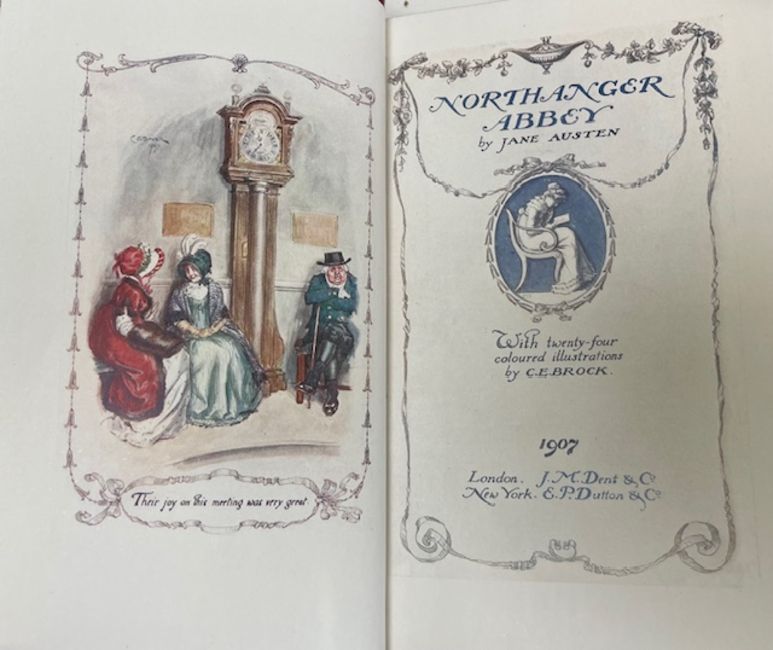 Their joy on this meeting was very great
NORTHANGER
ABBEY
by JANE AUSTEN
With twenty-four
coloured illustrations
by C.E.BROCK.
1907
London. J.M.Dent & Co
New York. E.P.Dutton & Co